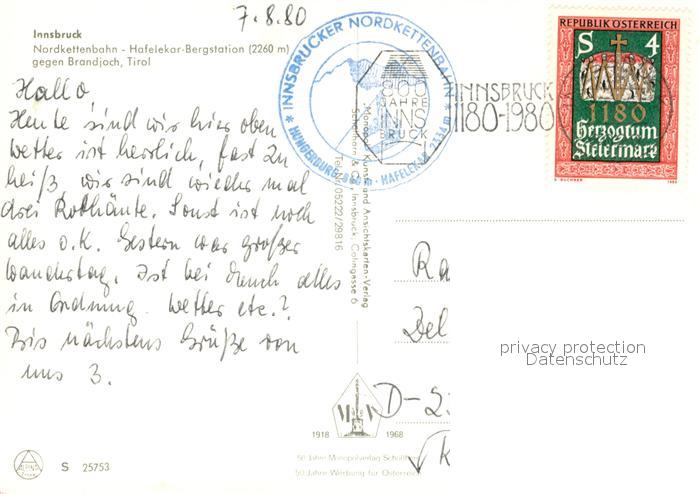 7.8.80
Innsbruck
Nordkettenbahn - Hafelekar-Bergstation (2260 m)
gegen Brandjoch, Tirol
Hallo
Heute sind wir hier oben
Wetter ist herrlich, fast zu
heiß, wir sind wieder mal
drei Rothäute. Sonst ist noch
alles o.K. Gestern war großer
Wandertag. Ist bei Euch alles
in Ordnung. Wetter etc.?
Bis nächstens Grüße von
uns 3.
* INNSBRUCKER NORDKETTENBAHN *
HUNGERBURG 860 m - HAFELEKAR 2334 m
800
JAHRE
INNS
BRUCK
INNSBRUCK
1180-1980
REPUBLIK ÖSTERREICH
S 4
1180
Herzogtum
Steiermark
1980
Monopol Kunst- und Ansichtskarten-Verlag
Schöllhorn & Co., Innsbruck, Colingasse 6
Telefon 05222/29816
Ra
Del
D-2
K
privacy protection
Datenschutz
M V
1918 1968
50 Jahre Monopolverlag Schöllhorn
50 Jahre Werbung für Österreich
ALPINE
S 25753